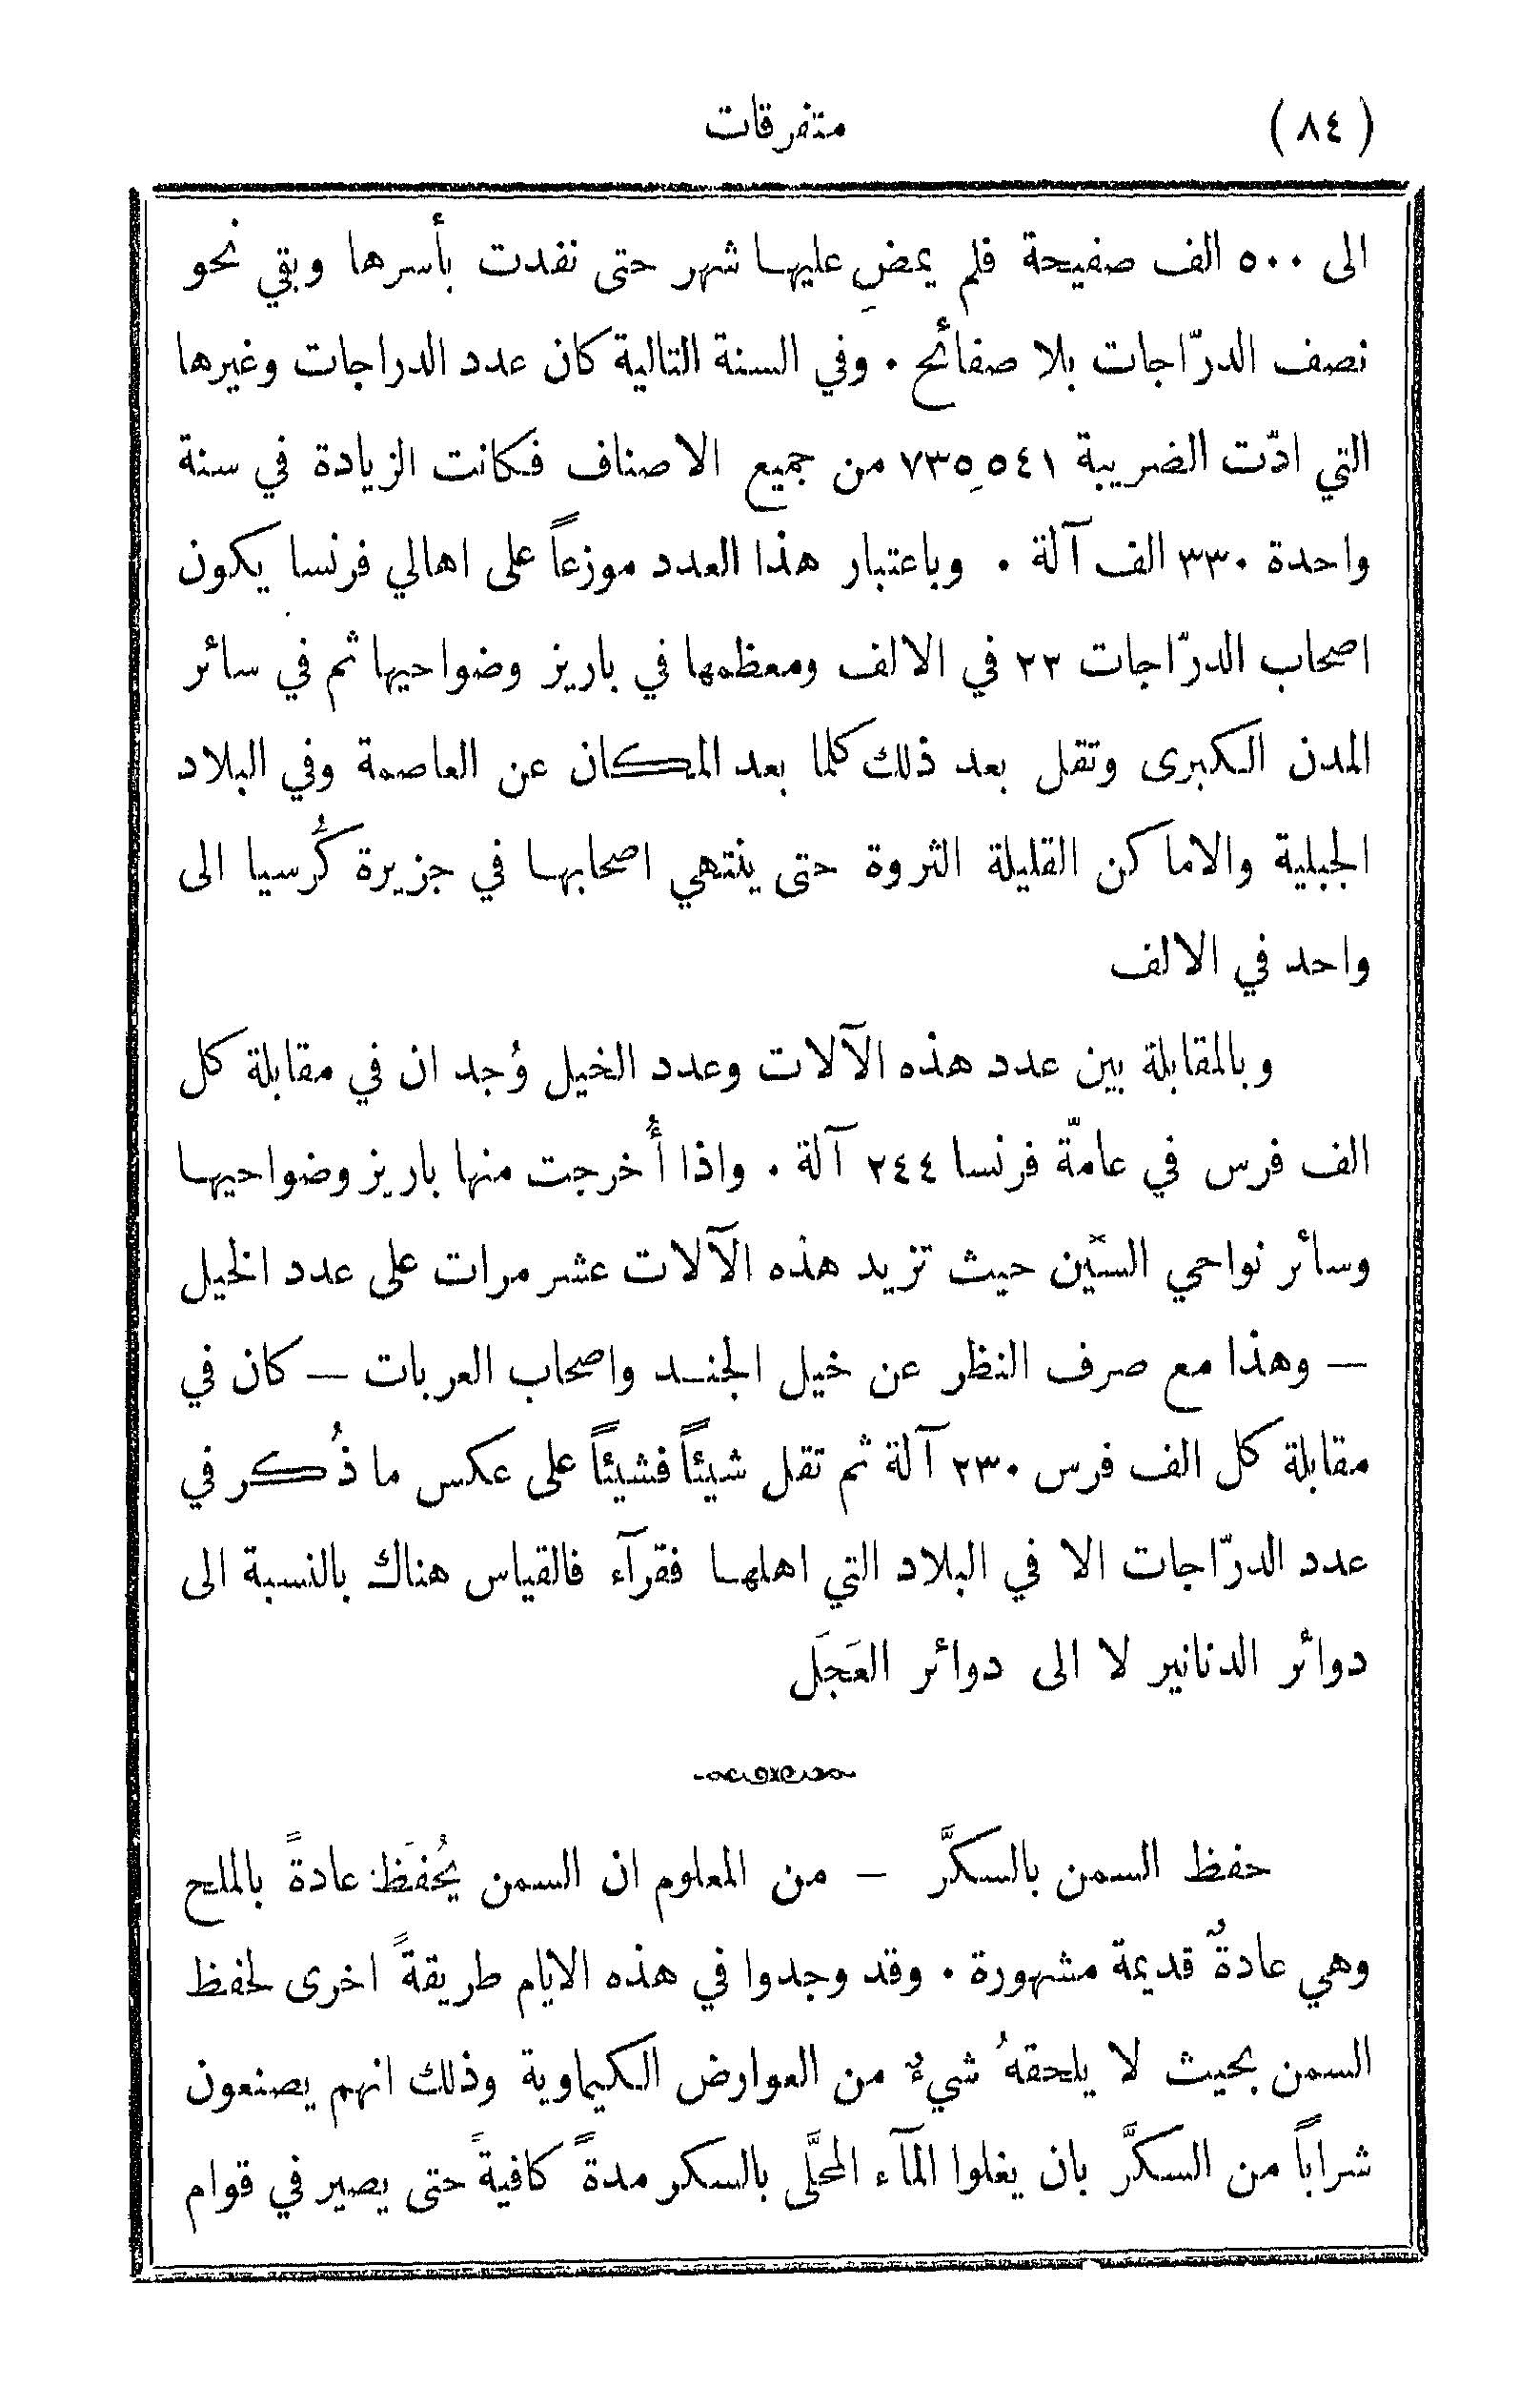 (٨٤) متفرقات
الى ٥٠٠ الف صفيحة فلم يمضِ عليها شهر حتى نفدت بأسرها وبقي نحو
نصف الدرّاجات بلا صفائح . وفي السنة التالية كان عدد الدراجات وغيرها
التي ادّت الضريبة ٧٣٥٬٥٤١ من جميع الاصناف فكانت الزيادة في سنة
واحدة ٣٣٠ الف آلة . وباعتبار هذا العدد موزعاً على اهالي فرنسا يكون
اصحاب الدرّاجات ٢٣ في الالف ومعظمها في باريز وضواحيها ثم في سائر
المدن الكبرى وتقل بعد ذلك كلما بعد المكان عن العاصمة وفي البلاد
الجبلية والاماكن القليلة الثروة حتى ينتهي اصحابها في جزيرة كُرسيا الى
واحد في الالف
وبالمقابلة بين عدد هذه الآلات وعدد الخيل وُجد ان في مقابلة كل
الف فرس في عامّة فرنسا ٢٤٤ آلة . واذا أُخرجت منها باريز وضواحيها
وسائر نواحي السّين حيث تزيد هذه الآلات عشر مرات على عدد الخيل
— وهذا مع صرف النظر عن خيل الجند واصحاب العربات — كان في
مقابلة كل الف فرس ٢٣٠ آلة ثم تقل شيئاً فشيئاً على عكس ما ذُكر في
عدد الدرّاجات الا في البلاد التي اهلها فقرآء فالقياس هناك بالنسبة الى
دوائر الدنانير لا الى دوائر العَجَل
حفظ السمن بالسكَّر — من المعلوم ان السمن يُحفَظ عادةً بالملح
وهي عادةٌ قديمة مشهورة . وقد وجدوا في هذه الايام طريقةً اخرى لحفظ
السمن بحيث لا يلحقهُ شيءٌ من العوارض الكيماوية وذلك انهم يصنعون
شراباً من السكَّر بان يغلوا المآء المحلَّى بالسكر مدةً كافيةً حتى يصير في قوام